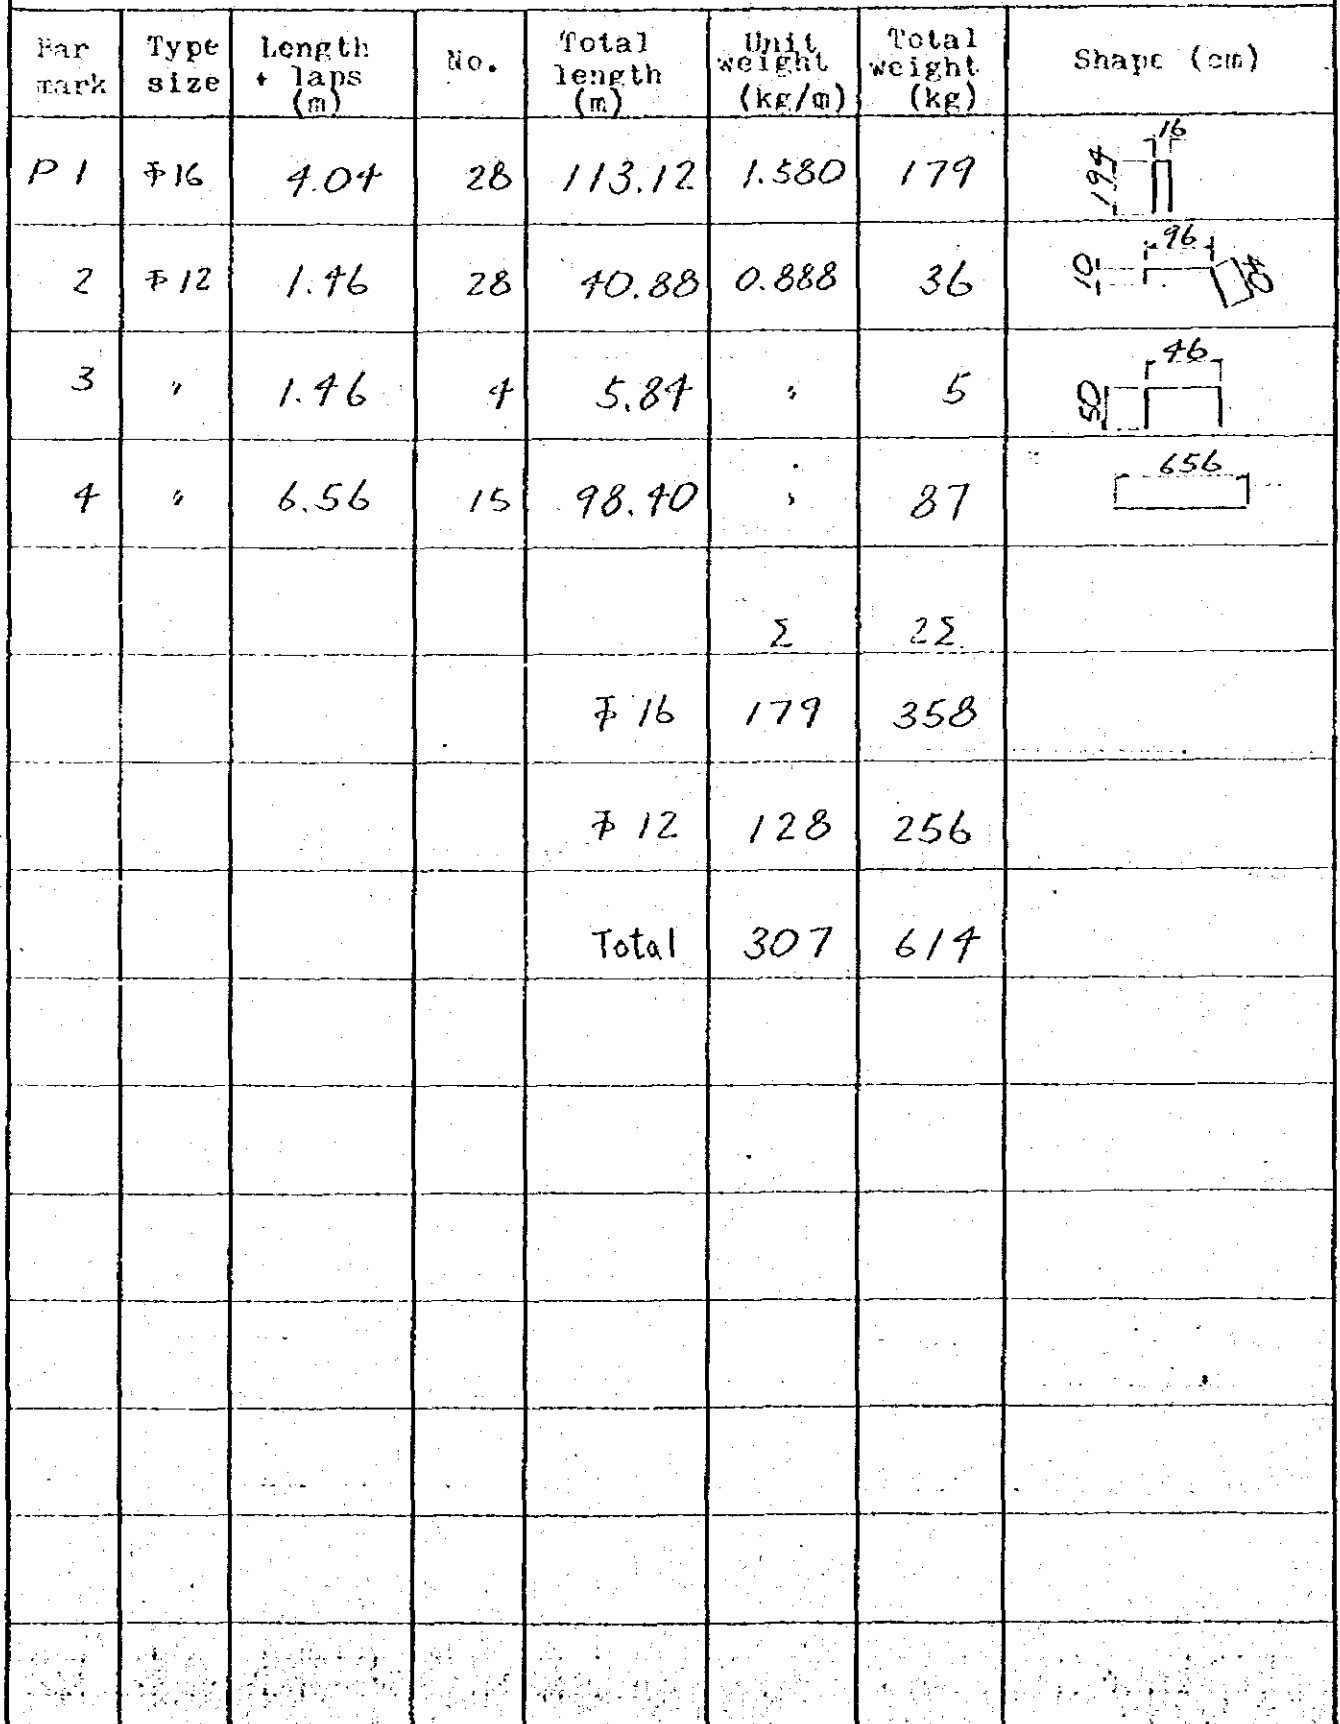 Bar mark | Type size | Length + laps (m) | No. | Total length (m) | Unit weight (kg/m) | Total weight (kg) | Shape (cm)
P 1 | Φ16 | 4.04 | 28 | 113.12 | 1.580 | 179 | 194 16
2 | Φ12 | 1.46 | 28 | 40.88 | 0.888 | 36 | 10 96 40
3 | " | 1.46 | 4 | 5.84 | " | 5 | 50 46
4 | " | 6.56 | 15 | 98.40 | " | 87 | 656
Σ | 2Σ
Φ16 | 179 | 358
Φ12 | 128 | 256
Total | 307 | 614